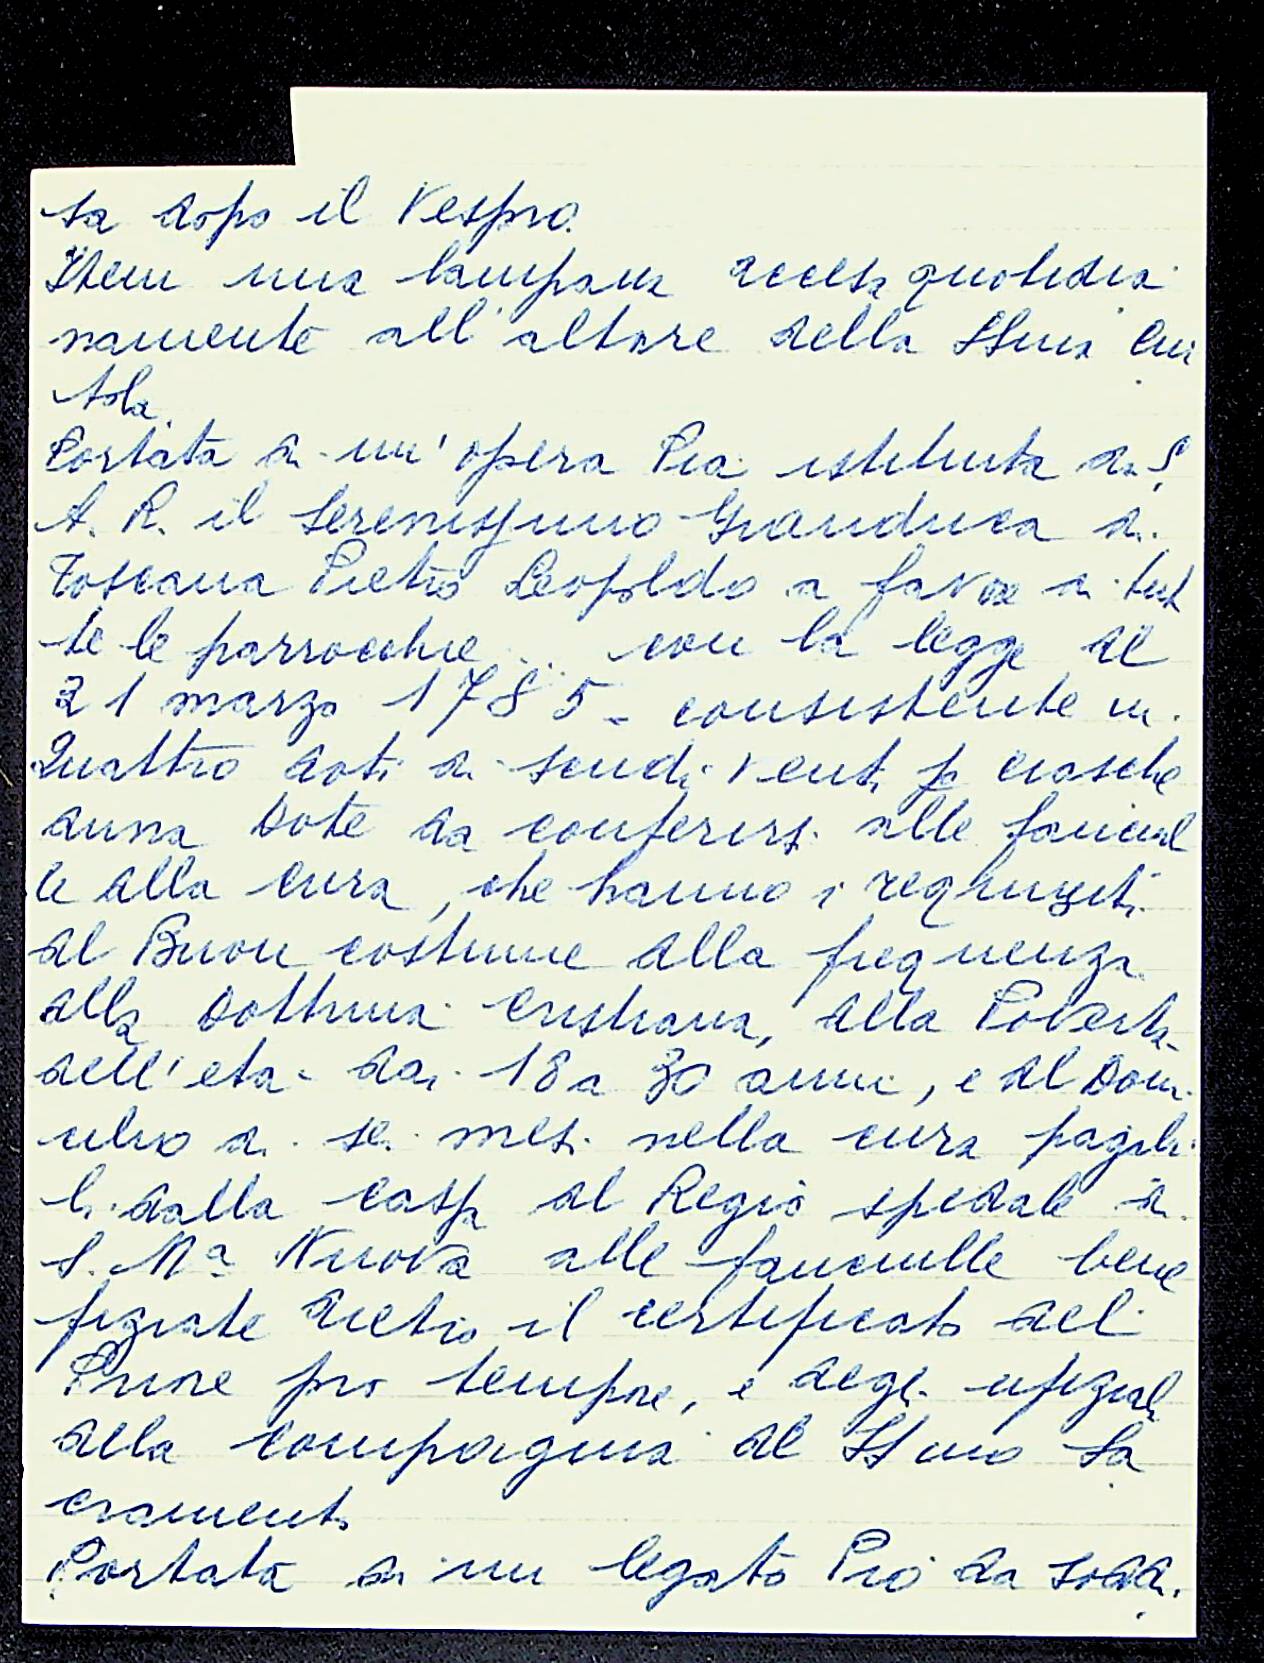 ta dopo il Vespro.
Item una lampana accesa quotidia
namente all'altare della SSma Cin
tola.
Portata di un'opera Pia istituita da S.
A. R. il Serenissimo Granduca di
Toscana Pietro Leopoldo a favore di tut
te le parrocchie ... con la legge del
21 marzo 1785 - consistente in
Quattro doti di scudi venti p ciasche
duna Dote da conferirsi alle fanciul
le della cura, che hanno i requisiti
del Buon costume della frequenza
alla Dottrina Cristiana, della Povertà
dell'età dai 18 a 30 anni, e del Domi
cilio di sei mesi nella cura pagabi
li dalla cassa del Regio spedale di
S. Mª Nuova alle fanciulle bene
fiziate dietro il certificato del
Priore pro tempore, e degli ufiziali
della compagnia del SSmo Sa
cramento
Portata di un legato Pio da sodd.